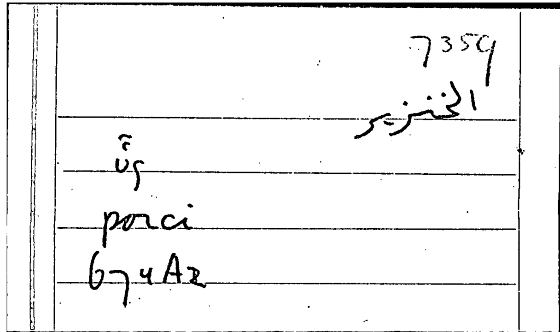 7359
الخنزير
ὗς
porci
674A2